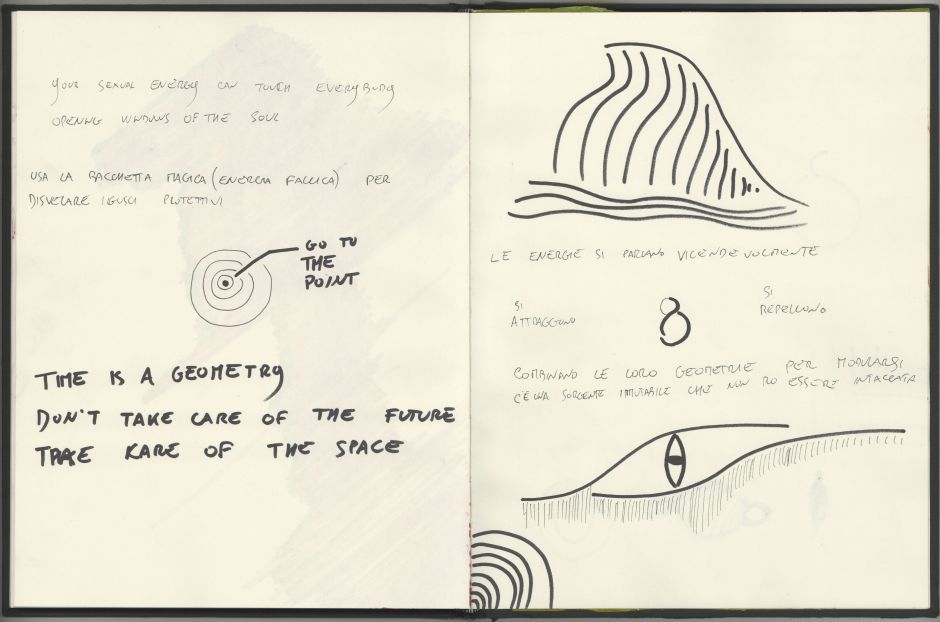 YOUR SEXUAL ENERGY CAN TOUCH EVERYBODY
OPENING WINDOWS OF THE SOUL
USA LA BACCHETTA MAGICA (ENERGIA FALLICA) PER
DISVELARE I GUSCI PROTETTIVI
GO TO
THE
POINT
TIME IS A GEOMETRY
DON'T TAKE CARE OF THE FUTURE
TAKE KARE OF THE SPACE
LE ENERGIE SI PARLANO VICENDEVOLMENTE
SI
ATTRAGGONO
8
SI
REPELLONO
COMBINANO LE LORO GEOMETRIE PER MODULARSI
C'È UNA SORGENTE IMMUTABILE CHE NON PUÒ ESSERE INTACCATA